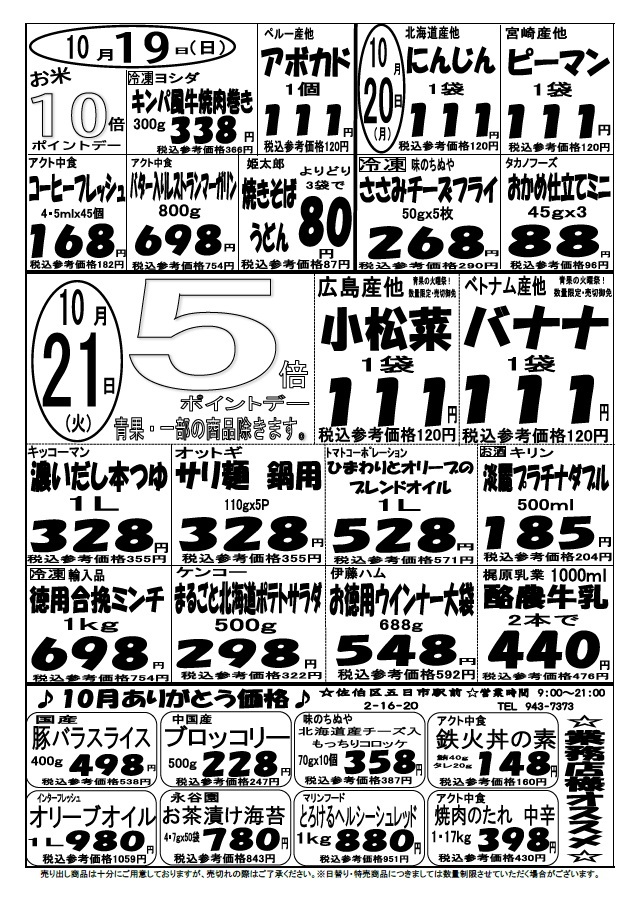 10月19日(日)
お米
10倍
ポイントデー
冷凍 ヨシダ
キンパ風牛焼肉巻き
300g 338円
税込参考価格366円
ペルー産他
アボカド
1個
111円
税込参考価格120円
10月20日(月)
北海道産他
にんじん
1袋
111円
税込参考価格120円
宮崎産他
ピーマン
1袋
111円
税込参考価格120円
アクト中食
コーヒーフレッシュ
4・5mlx45個
168円
税込参考価格182円
アクト中食
バター入りレストランマーガリン
800g
698円
税込参考価格754円
姫太郎
焼きそば
うどん
よりどり
3袋で
80円
税込参考価格87円
冷凍 味のちぬや
ささみチーズフライ
50gx5枚
268円
税込参考価格290円
タカノフーズ
おかめ仕立てミニ
45gx3
88円
税込参考価格96円
10月21日(火)
5倍
ポイントデー
青果・一部の商品除きます。
広島産他 青果の火曜祭!
数量限定・売切御免
小松菜
1袋
111円
税込参考価格120円
ベトナム産他 青果の火曜祭!
数量限定・売切御免
バナナ
1袋
111円
税込参考価格120円
キッコーマン
濃いだし本つゆ
1L
328円
税込参考価格355円
オットギ
サリ麺 鍋用
110gx5P
328円
税込参考価格355円
トマトコーポレーション
ひまわりとオリーブの
ブレンドオイル
1L
528円
税込参考価格571円
お酒 キリン
淡麗プラチナダブル
500ml
185円
税込参考価格204円
冷凍 輸入品
徳用合挽ミンチ
1kg
698円
税込参考価格754円
ケンコー
まるごと北海道ポテトサラダ
500g
298円
税込参考価格322円
伊藤ハム
お徳用ウインナー大袋
688g
548円
税込参考価格592円
梶原乳業 1000ml
酪農牛乳
2本で
440円
税込参考価格476円
♪10月ありがとう価格♪
☆佐伯区五日市駅前 ☆営業時間 9:00~21:00
2-16-20 TEL 943-7373
国産
豚バラスライス
400g 498円
税込参考価格538円
中国産
ブロッコリー
500g 228円
税込参考価格247円
味のちぬや
北海道産チーズ入
もっちりコロッケ
70gx10個 358円
税込参考価格387円
アクト中食
鉄火丼の素
鮪40g
タレ20g 148円
税込参考価格160円
☆業務店様オススメ☆
インターフレッシュ
オリーブオイル
1L 980円
税込参考価格1059円
永谷園
お茶漬け海苔
4・7gx50袋 780円
税込参考価格843円
マリンフード
とろけるヘルシーシュレッド
1kg 880円
税込参考価格951円
アクト中食
焼肉のたれ 中辛
1・17kg 398円
税込参考価格430円
売り出し商品は十分にご用意しておりますが、売切れの際はご了承ください。※日替り・特売商品につきましては数量制限させていただく場合がございます。